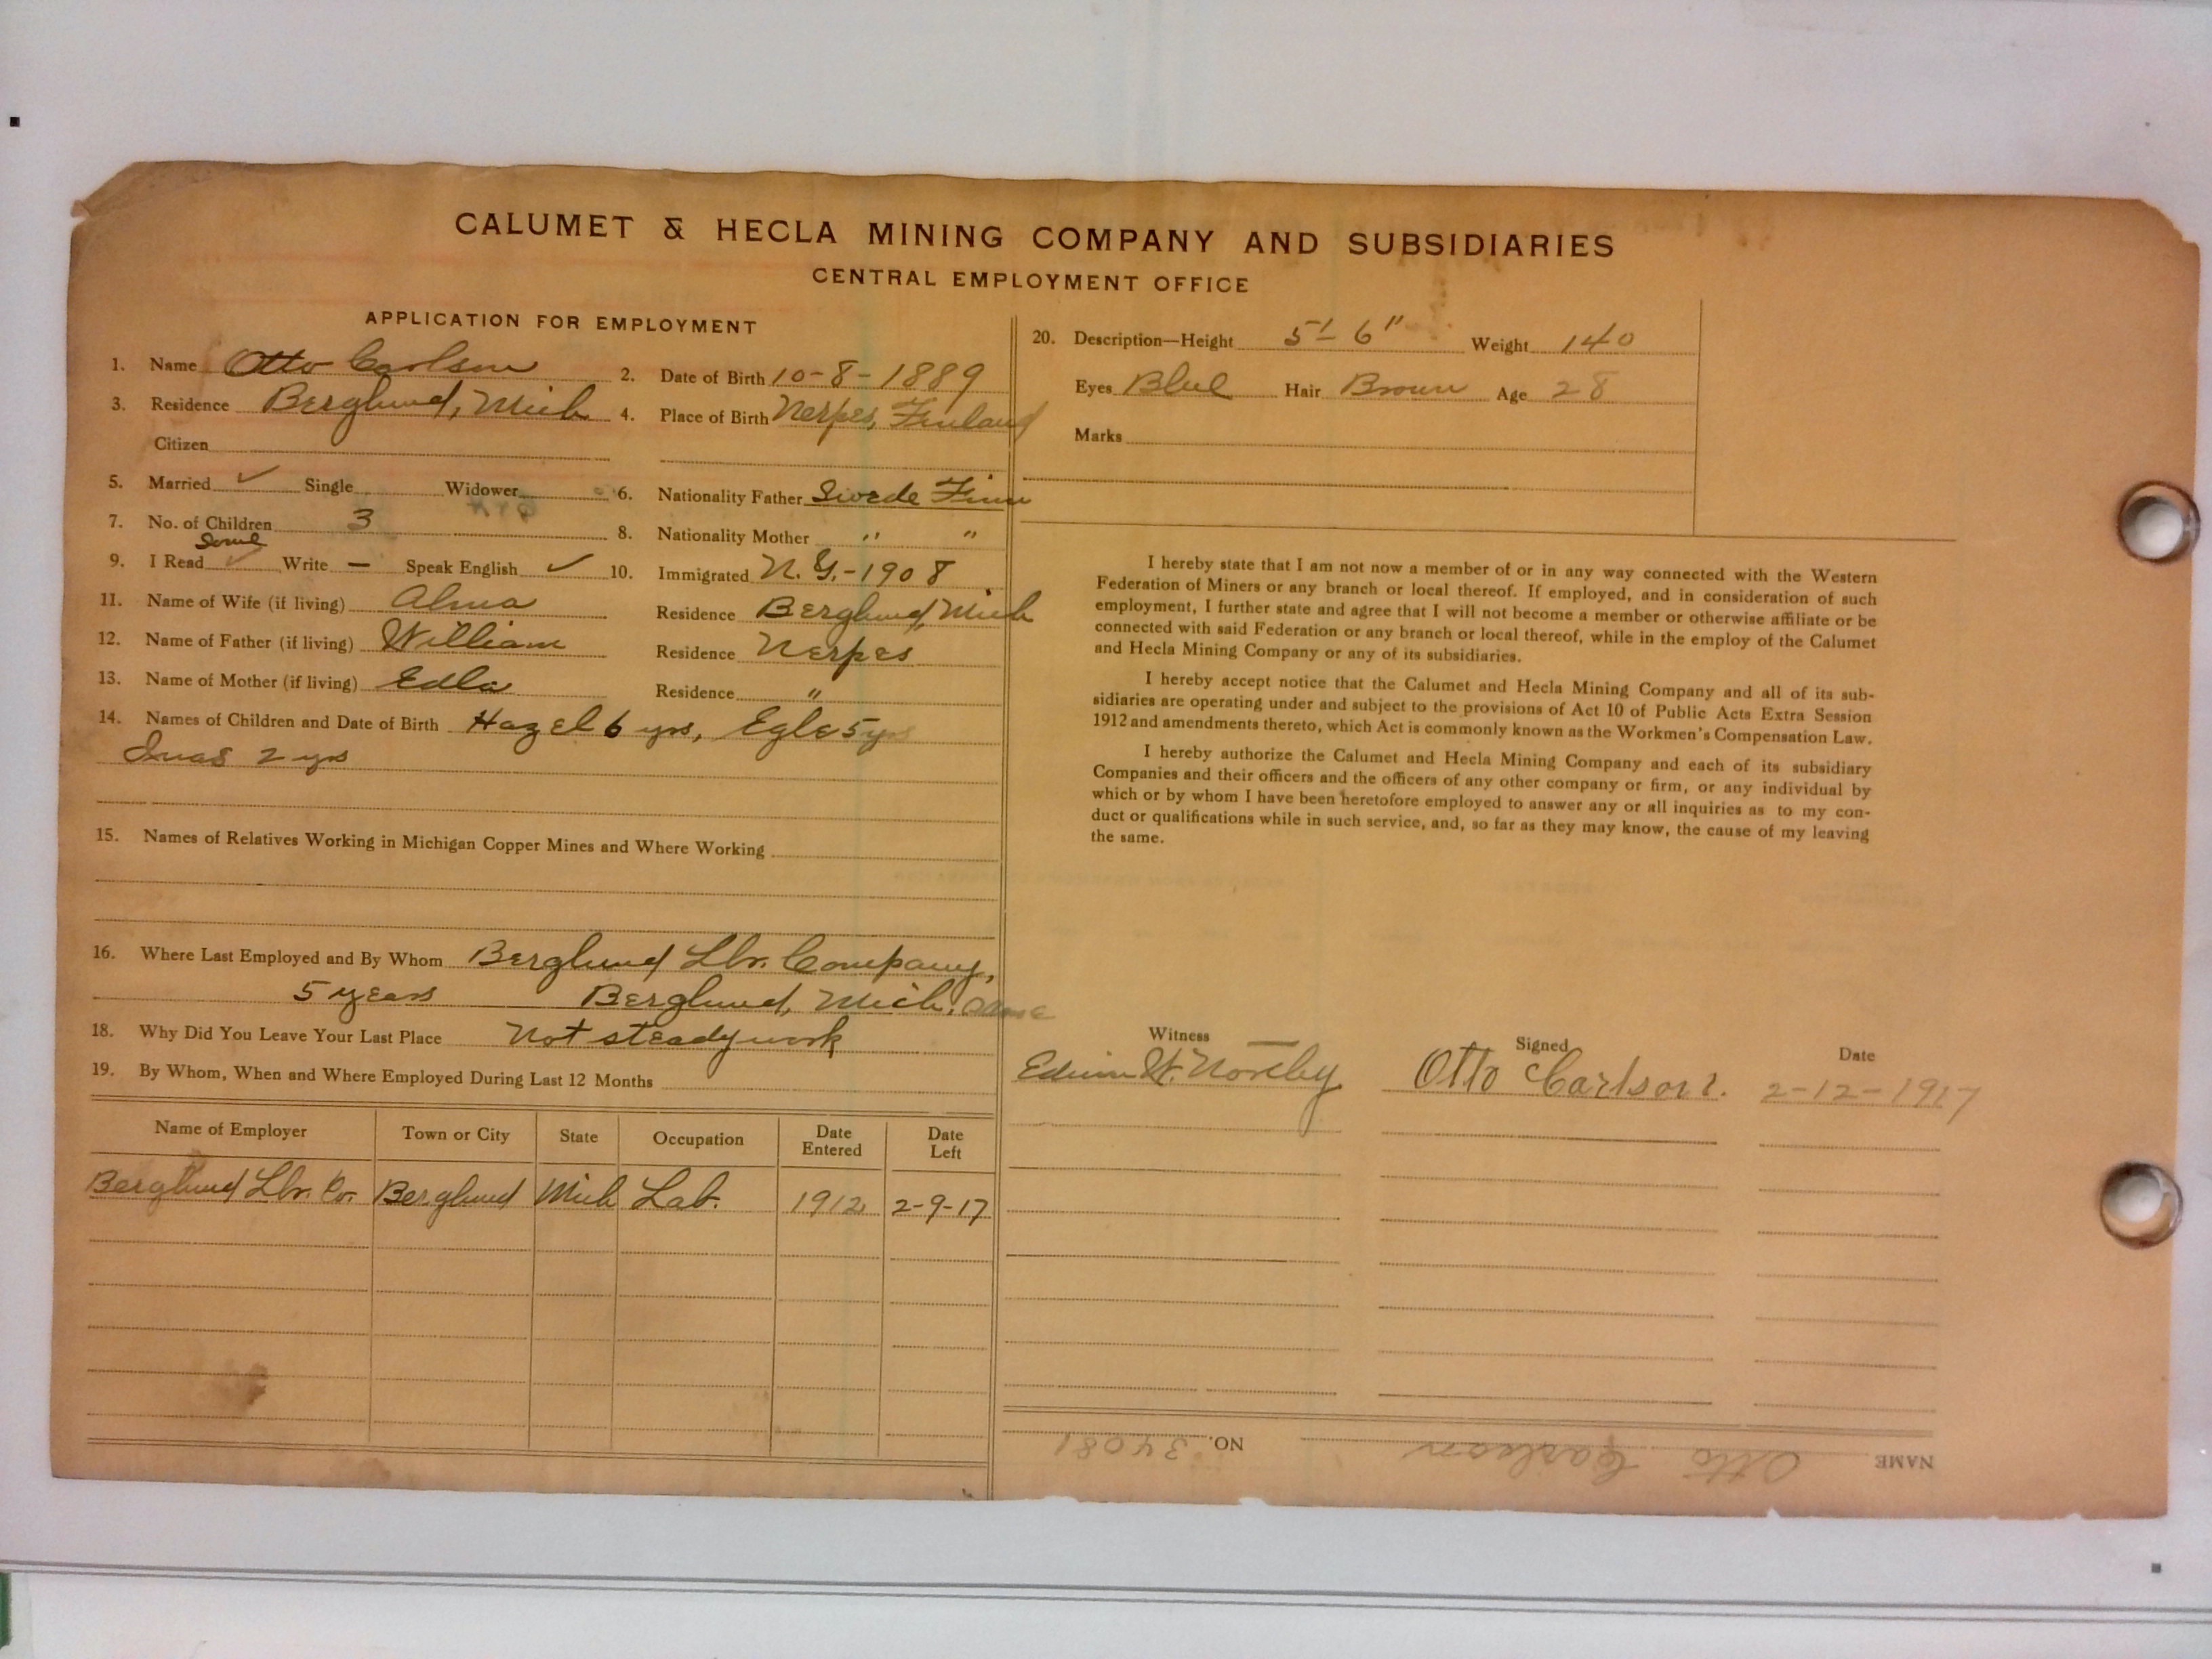 CALUMET & HECLA MINING COMPANY AND SUBSIDIARIES
CENTRAL EMPLOYMENT OFFICE
APPLICATION FOR EMPLOYMENT
1. Name Otto Carlson 2. Date of Birth 10-8-1889
3. Residence Berglund, Mich 4. Place of Birth Nerpes, Finland
Citizen
5. Married ✓ Single Widower 6. Nationality Father Swede Finn
7. No. of Children 3 8. Nationality Mother " "
Some
9. I Read ✓ Write — Speak English ✓ 10. Immigrated N. Y.-1908
11. Name of Wife (if living) Alma Residence Berglund, Mich
12. Name of Father (if living) William Residence Nerpes
13. Name of Mother (if living) Edla Residence "
14. Names of Children and Date of Birth Hazel 6 yrs, Egle 5 yrs
2 yrs
15. Names of Relatives Working in Michigan Copper Mines and Where Working
16. Where Last Employed and By Whom Berglund Lbr. Company,
5 years Berglund, Mich.
18. Why Did You Leave Your Last Place Not steady work
19. By Whom, When and Where Employed During Last 12 Months
Name of Employer Town or City State Occupation Date Entered Date Left
Berglund Lbr. Co. Berglund Mich Lab. 1912 2-9-17
20. Description—Height 5'- 6" Weight 140
Eyes Blue Hair Brown Age 28
Marks
I hereby state that I am not now a member of or in any way connected with the Western
Federation of Miners or any branch or local thereof. If employed, and in consideration of such
employment, I further state and agree that I will not become a member or otherwise affiliate or be
connected with said Federation or any branch or local thereof, while in the employ of the Calumet
and Hecla Mining Company or any of its subsidiaries.
I hereby accept notice that the Calumet and Hecla Mining Company and all of its sub-
sidiaries are operating under and subject to the provisions of Act 10 of Public Acts Extra Session
1912 and amendments thereto, which Act is commonly known as the Workmen's Compensation Law.
I hereby authorize the Calumet and Hecla Mining Company and each of its subsidiary
Companies and their officers and the officers of any other company or firm, or any individual by
which or by whom I have been heretofore employed to answer any or all inquiries as to my con-
duct or qualifications while in such service, and, so far as they may know, the cause of my leaving
the same.
Witness Signed Date
Edwin W. Otto Carlson. 2-12-1917
NAME Otto Carlson NO. 34081